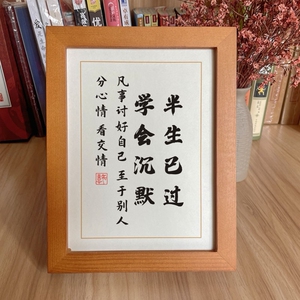 半生已过
学会沉默
凡事讨好自己 至于别人
分心情 看交情